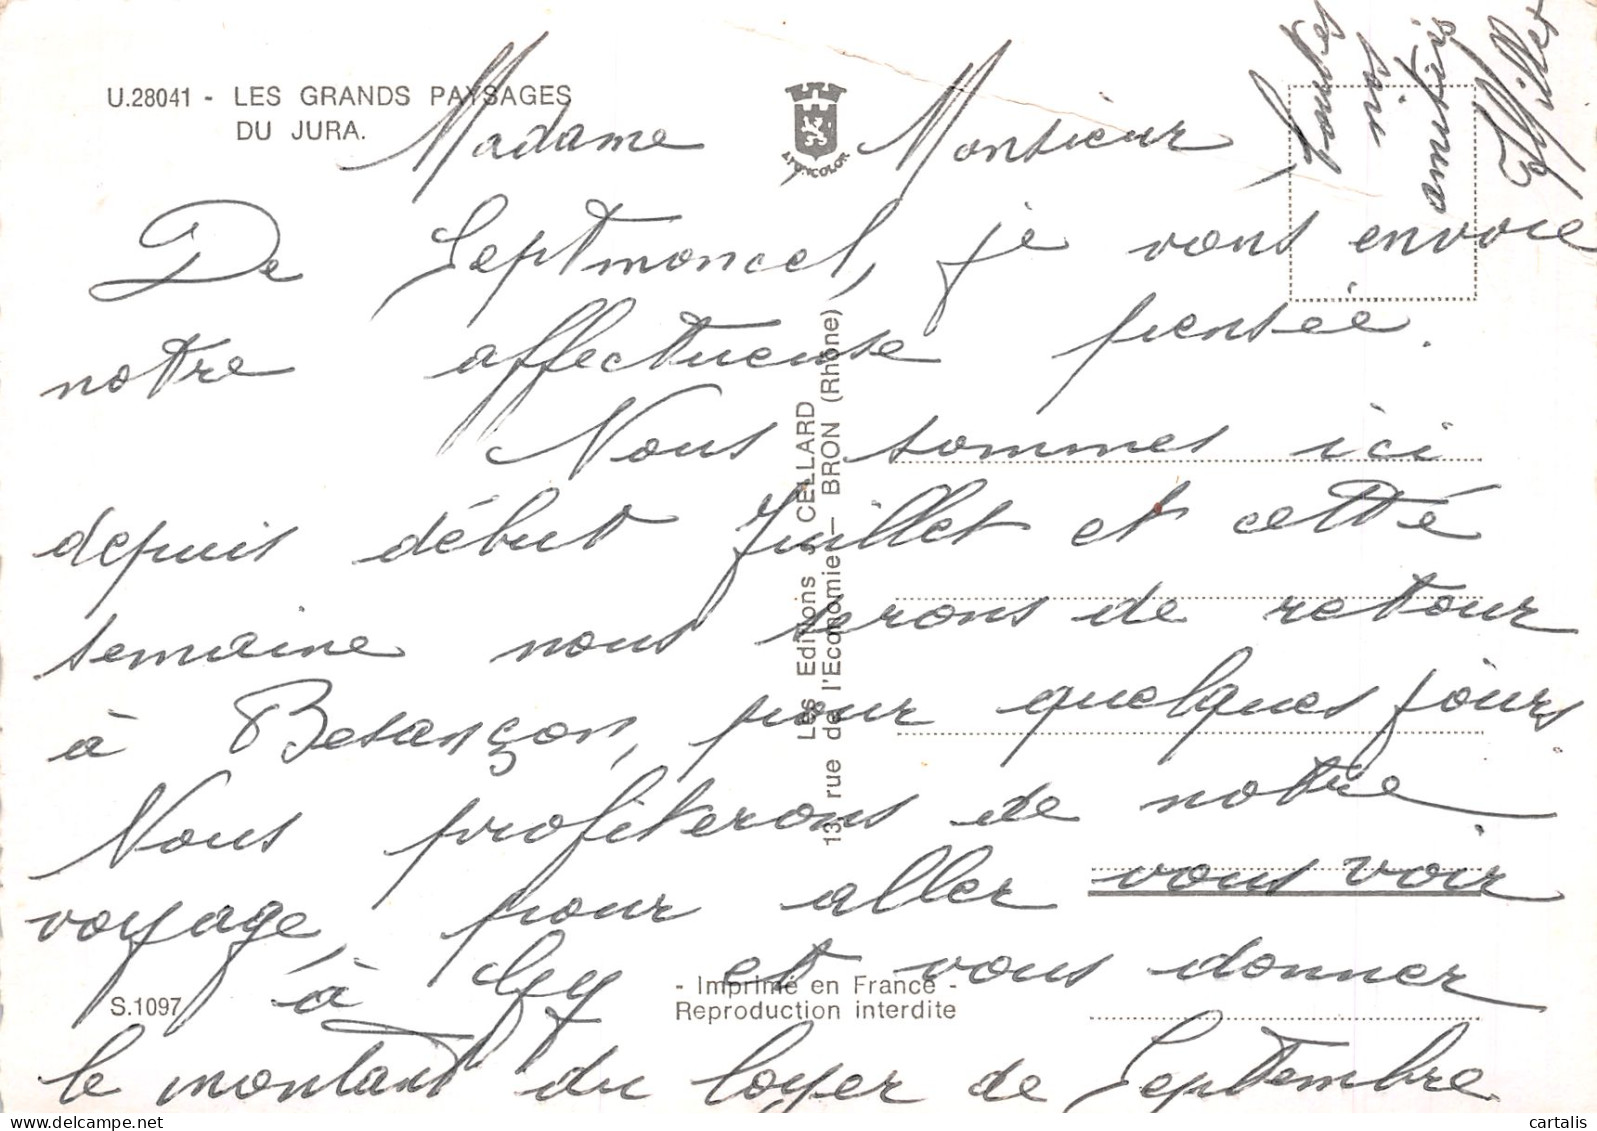 U.28041 - LES GRANDS PAYSAGES
DU JURA.
APONCOLOR
Madame Monsieur,
De Septmoncel, je vous envoie
notre affectueuse pensée.
Nous sommes ici
depuis début Juillet et cette
semaine nous serons de retour
à Besançon, pour quelques jours.
Nous profiterons de notre
voyage, pour aller vous voir
à Gy et vous donner
le montant du loyer de Septembre
amitiés
Les Editions J. CELLARD
13, rue de l'Economie – BRON (Rhône)
- Imprimé en France -
Reproduction interdite
S.1097
cartalis
www.delcampe.net